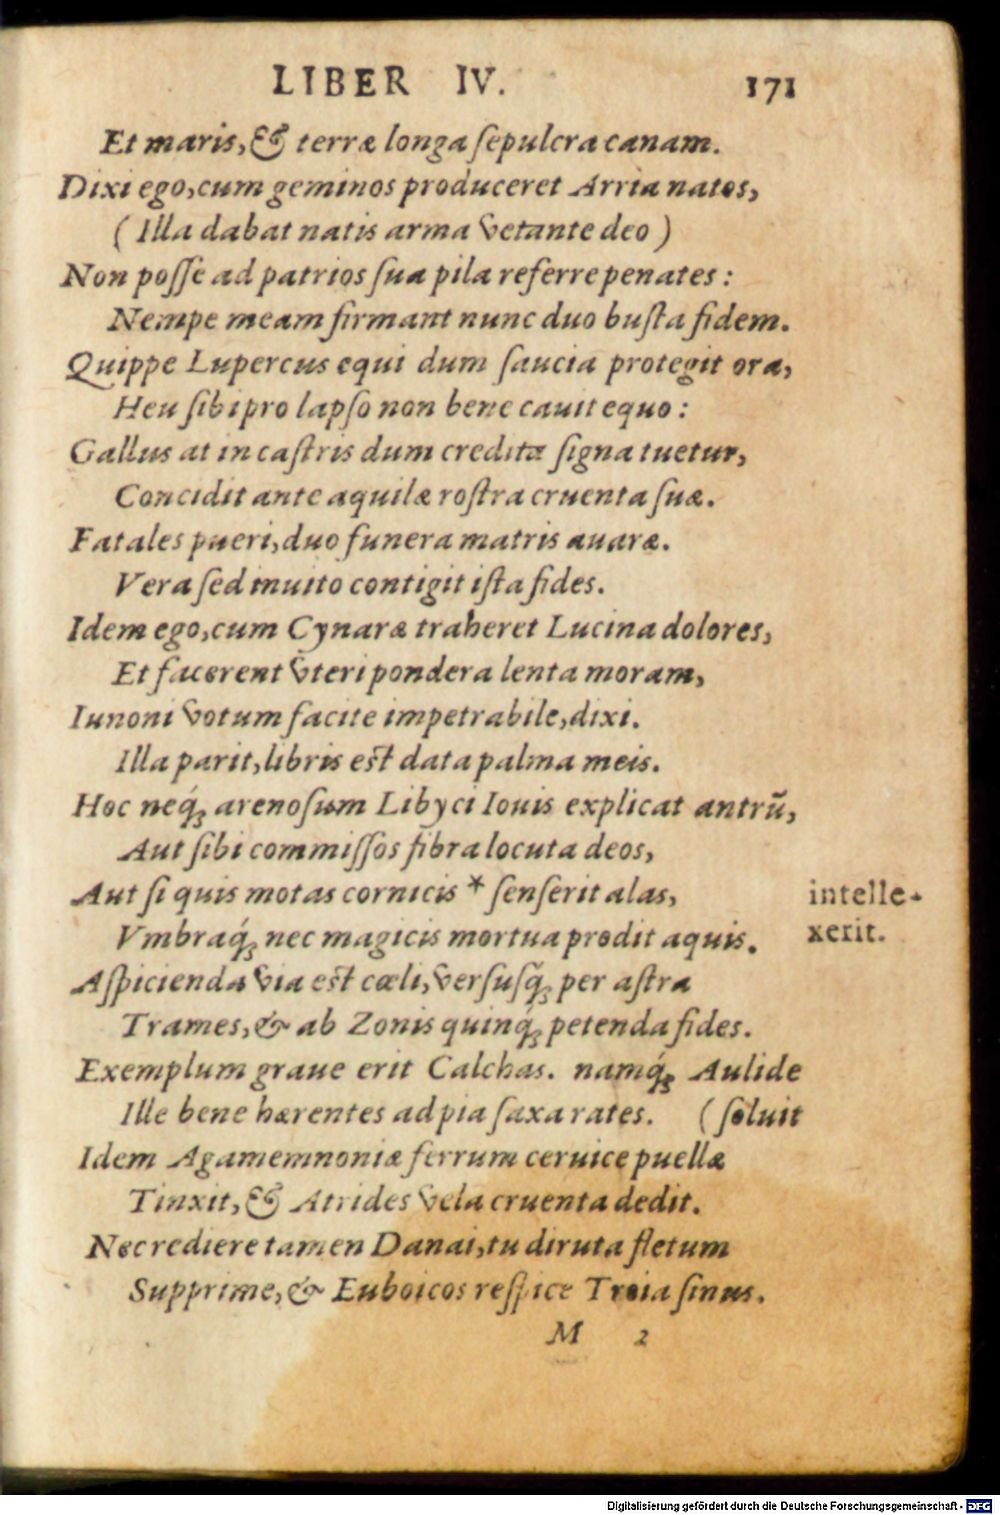 LIBER IV. 171
Et maris, & terræ longa ſepulcra canam.
Dixi ego, cum geminos produceret Arria natos,
( Illa dabat natis arma vetante deo )
Non poſſe ad patrios ſua pila referre penates :
Nempe meam firmant nunc duo buſta fidem.
Quippe Lupercus equi dum ſaucia protegit ora,
Heu ſibi pro lapſo non bene cauit equo :
Gallus at in caſtris dum credita ſigna tuetur,
Concidit ante aquilæ roſtra cruenta ſuæ.
Fatales pueri, duo funera matris auaræ.
Vera ſed inuito contigit iſta fides.
Idem ego, cum Cynaræ traheret Lucina dolores,
Et facerent vteri pondera lenta moram,
Iunoni votum facite impetrabile, dixi.
Illa parit, libris eſt data palma meis.
Hoc neq́ꝫ arenoſum Libyci Iouis explicat antrũ,
Aut ſibi commiſſos fibra locuta deos,
Aut ſi quis motas cornicis * ſenſerit alas,
intelle-
xerit.
Vmbraq́ꝫ nec magicis mortua prodit aquis.
Aſpicienda via eſt cœli, verſuſq́ꝫ per aſtra
Trames, & ab Zonis quinq́ꝫ petenda fides.
Exemplum graue erit Calchas. namq́ꝫ Aulide
Ille bene hærentes ad pia ſaxa rates. ( ſoluit
Idem Agamemnoniæ ferrum ceruice puellæ
Tinxit, & Atrides vela cruenta dedit.
Nec rediere tamen Danai, tu diruta fletum
Supprime, & Euboicos reſpice Troia ſinus.
M 2
Digitalisierung gefördert durch die Deutsche Forschungsgemeinschaft - DFG